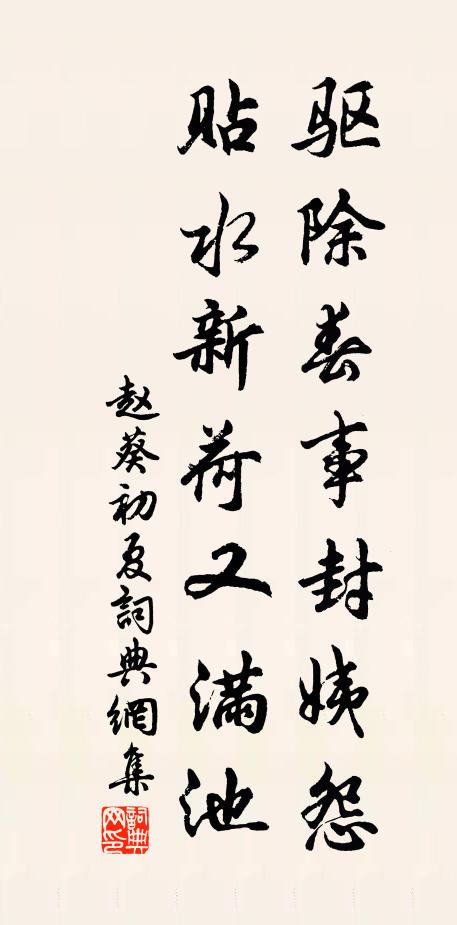 驱除春事封姨怨
贴水新荷又满池
赵葵初夏词典網集
詞典网印